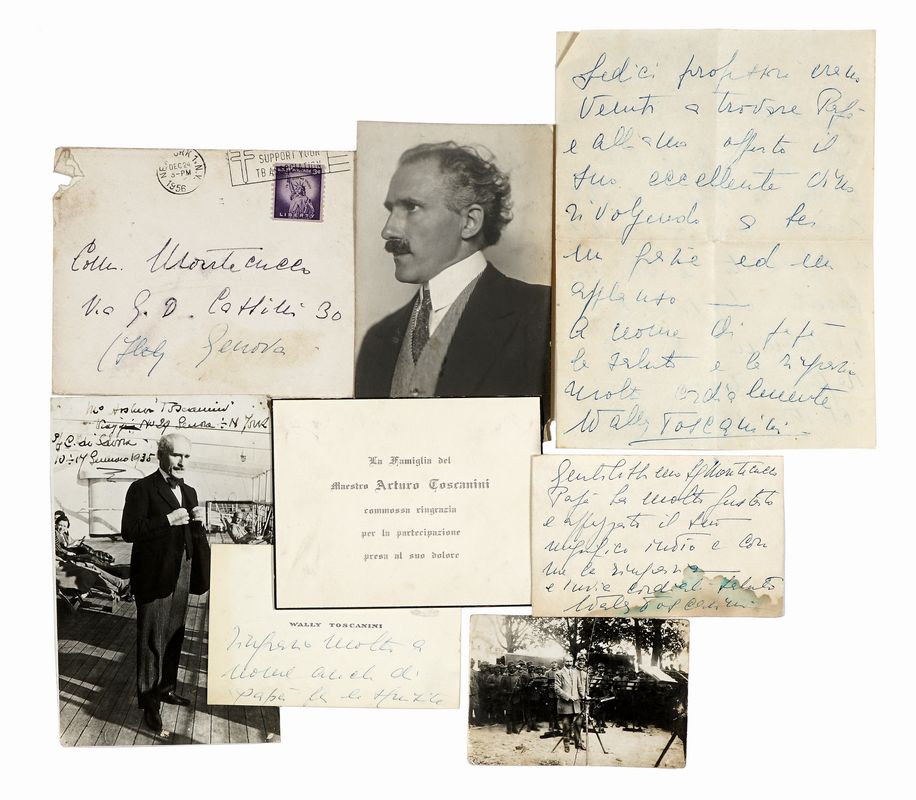 NEW YORK, N.Y.
DEC 24
3-PM
1956
SUPPORT YOUR
TB ASSOCIATION
3¢
LIBERTY
Com. Montecucco
Via G. D. Cassini 30
(Italy Genova
Sedici professori erano
venuti a trovare Papà
e abbiamo offerto il
suo eccellente
rivolgendo a lei
un grazie ed un
applauso —
A nome di papà
la saluto e la ringrazio
molto cordialmente
Wally Toscanini
Mo Arturo Toscanini
Genova - N York
S/C. di Savoia
10 - 17 Gennaio 1935
La Famiglia del
Maestro Arturo Toscanini
commossa ringrazia
per la partecipazione
presa al suo dolore
Montecucco
Papà ha molto gustato
e apprezzato il suo
magnifico invio e con
me la ringrazia —
e invia cordiali saluti
Wally Toscanini
WALLY TOSCANINI
Ringrazio molto a
nome anche di
papà